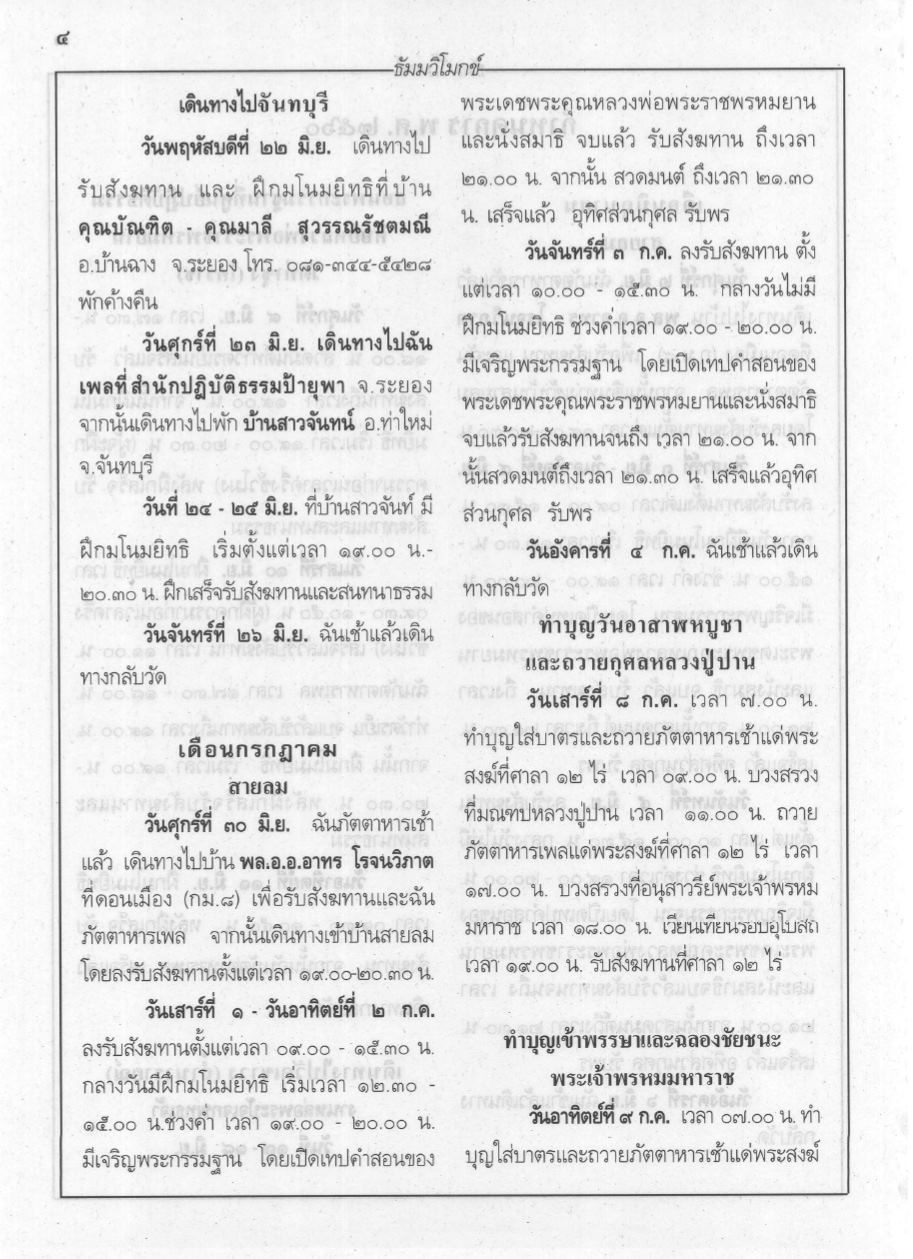 ๔
ธัมมวิโมกข์
เดินทางไปจันทบุรี
วันพฤหัสบดีที่ ๒๒ มิ.ย. เดินทางไป
รับสังฆทาน และ ฝึกมโนมยิทธิที่บ้าน
คุณบัณฑิต - คุณมาลี สุวรรณรัชตมณี
อ.บ้านฉาง จ.ระยอง โทร. ๐๘๑-๓๔๔-๕๔๒๘
พักค้างคืน
วันศุกร์ที่ ๒๓ มิ.ย. เดินทางไปฉัน
เพลที่สำนักปฏิบัติธรรมป้ายุพา จ.ระยอง
จากนั้นเดินทางไปพัก บ้านสาวจันทน์ อ.ท่าใหม่
จ.จันทบุรี
วันที่ ๒๔ - ๒๕ มิ.ย. ที่บ้านสาวจันท์ มี
ฝึกมโนมยิทธิ เริ่มตั้งแต่เวลา ๑๙.๐๐ น.-
๒๐.๓๐ น. ฝึกเสร็จรับสังฆทานและสนทนาธรรม
วนจันทร์ที่ ๒๖ มิ.ย. ฉันเช้าแล้วเดิน
ทางกลับวัด
เดือนกรกฎาคม
สายลม
วันศุกร์ที่ ๓๐ มิ.ย. ฉันภัตตาหารเช้า
แล้ว เดินทางไปบ้าน พล.อ.อ.อาทร โรจนวิภาต
ที่ดอนเมือง (กม.๘) เพื่อรับสังฆทานและฉัน
ภัตตาหารเพล จากนั้นเดินทางเข้าบ้านสายลม
โดยลงรับสังฆทานตั้งแต่เวลา ๑๙.๐๐-๒๐.๓๐ น.
วันเสาร์ที่ ๑ - วันอาทิตย์ที่ ๒ ก.ค.
ลงรับสังฆทานตั้งแต่เวลา ๐๙.๐๐ - ๑๕.๓๐ น.
กลางวันมีฝึกมโนมยิทธิ เริ่มเวลา ๑๒.๓๐ -
๑๕.๐๐ น.ช่วงค่ำ เวลา ๑๙.๐๐ - ๒๐.๐๐ น.
มีเจริญพระกรรมฐาน โดยเปิดเทปคำสอนของ
พระเดชพระคุณหลวงพ่อพระราชพรหมยาน
และนั่งสมาธิ จบแล้ว รับสังฆทาน ถึงเวลา
๒๑.๐๐ น. จากนั้น สวดมนต์ ถึงเวลา ๒๑.๓๐
น. เสร็จแล้ว อุทิศส่วนกุศล รับพร
วันจันทร์ที่ ๓ ก.ค. ลงรับสังฆทาน ตั้ง
แต่เวลา ๑๐.๐๐ - ๑๕.๓๐ น. กลางวันไม่มี
ฝึกมโนมยิทธิ ช่วงค่ำเวลา ๑๙.๐๐ - ๒๐.๐๐ น.
มีเจริญพระกรรมฐาน โดยเปิดเทปคำสอนของ
พระเดชพระคุณพระราชพรหมยานและนั่งสมาธิ
จบแล้วรับสังฆทานจนถึง เวลา ๒๑.๐๐ น. จาก
นั้นสวดมนต์ถึงเวลา ๒๑.๓๐ น. เสร็จแล้วอุทิศ
ส่วนกุศล รับพร
วันอังคารที่ ๔ ก.ค. ฉันเช้าแล้วเดิน
ทางกลับวัด
ทำบุญวันอาสาฬหบูชา
และถวายกุศลหลวงปู่ปาน
วันเสาร์ที่ ๘ ก.ค. เวลา ๗.๐๐ น.
ทำบุญใส่บาตรและถวายภัตตาหารเช้าแด่พระ
สงฆ์ที่ศาลา ๑๒ ไร่ เวลา ๐๙.๐๐ น. บวงสรวง
ที่มณฑปหลวงปู่ปาน เวลา ๑๑.๐๐ น. ถวาย
ภัตตาหารเพลแด่พระสงฆ์ที่ศาลา ๑๒ ไร่ เวลา
๑๗.๐๐ น. บวงสรวงที่อนุสาวรีย์พระเจ้าพรหม
มหาราช เวลา ๑๘.๐๐ น. เวียนเทียนรอบอุโบสถ
เวลา ๑๙.๐๐ น. รับสังฆทานที่ศาลา ๑๒ ไร่
ทำบุญเข้าพรรษาและฉลองชัยชนะ
พระเจ้าพรหมมหาราช
วันอาทิตย์ที่ ๙ ก.ค. เวลา ๐๗.๐๐ น. ทำ
บุญใส่บาตรและถวายภัตตาหารเช้าแด่พระสงฆ์